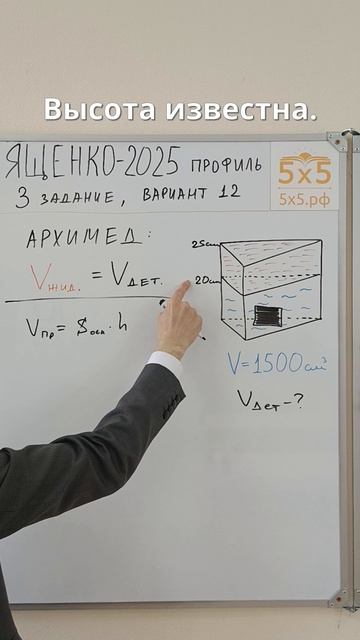 Высота известна.
ЯЩЕНКО-2025 ПРОФИЛЬ
3 ЗАДАНИЕ, ВАРИАНТ 12
5×5
5x5.рф
АРХИМЕД:
Vжид. = Vдет.
Vпр = Sосн. h
25см
20см
V=1500 см³
Vдет - ?